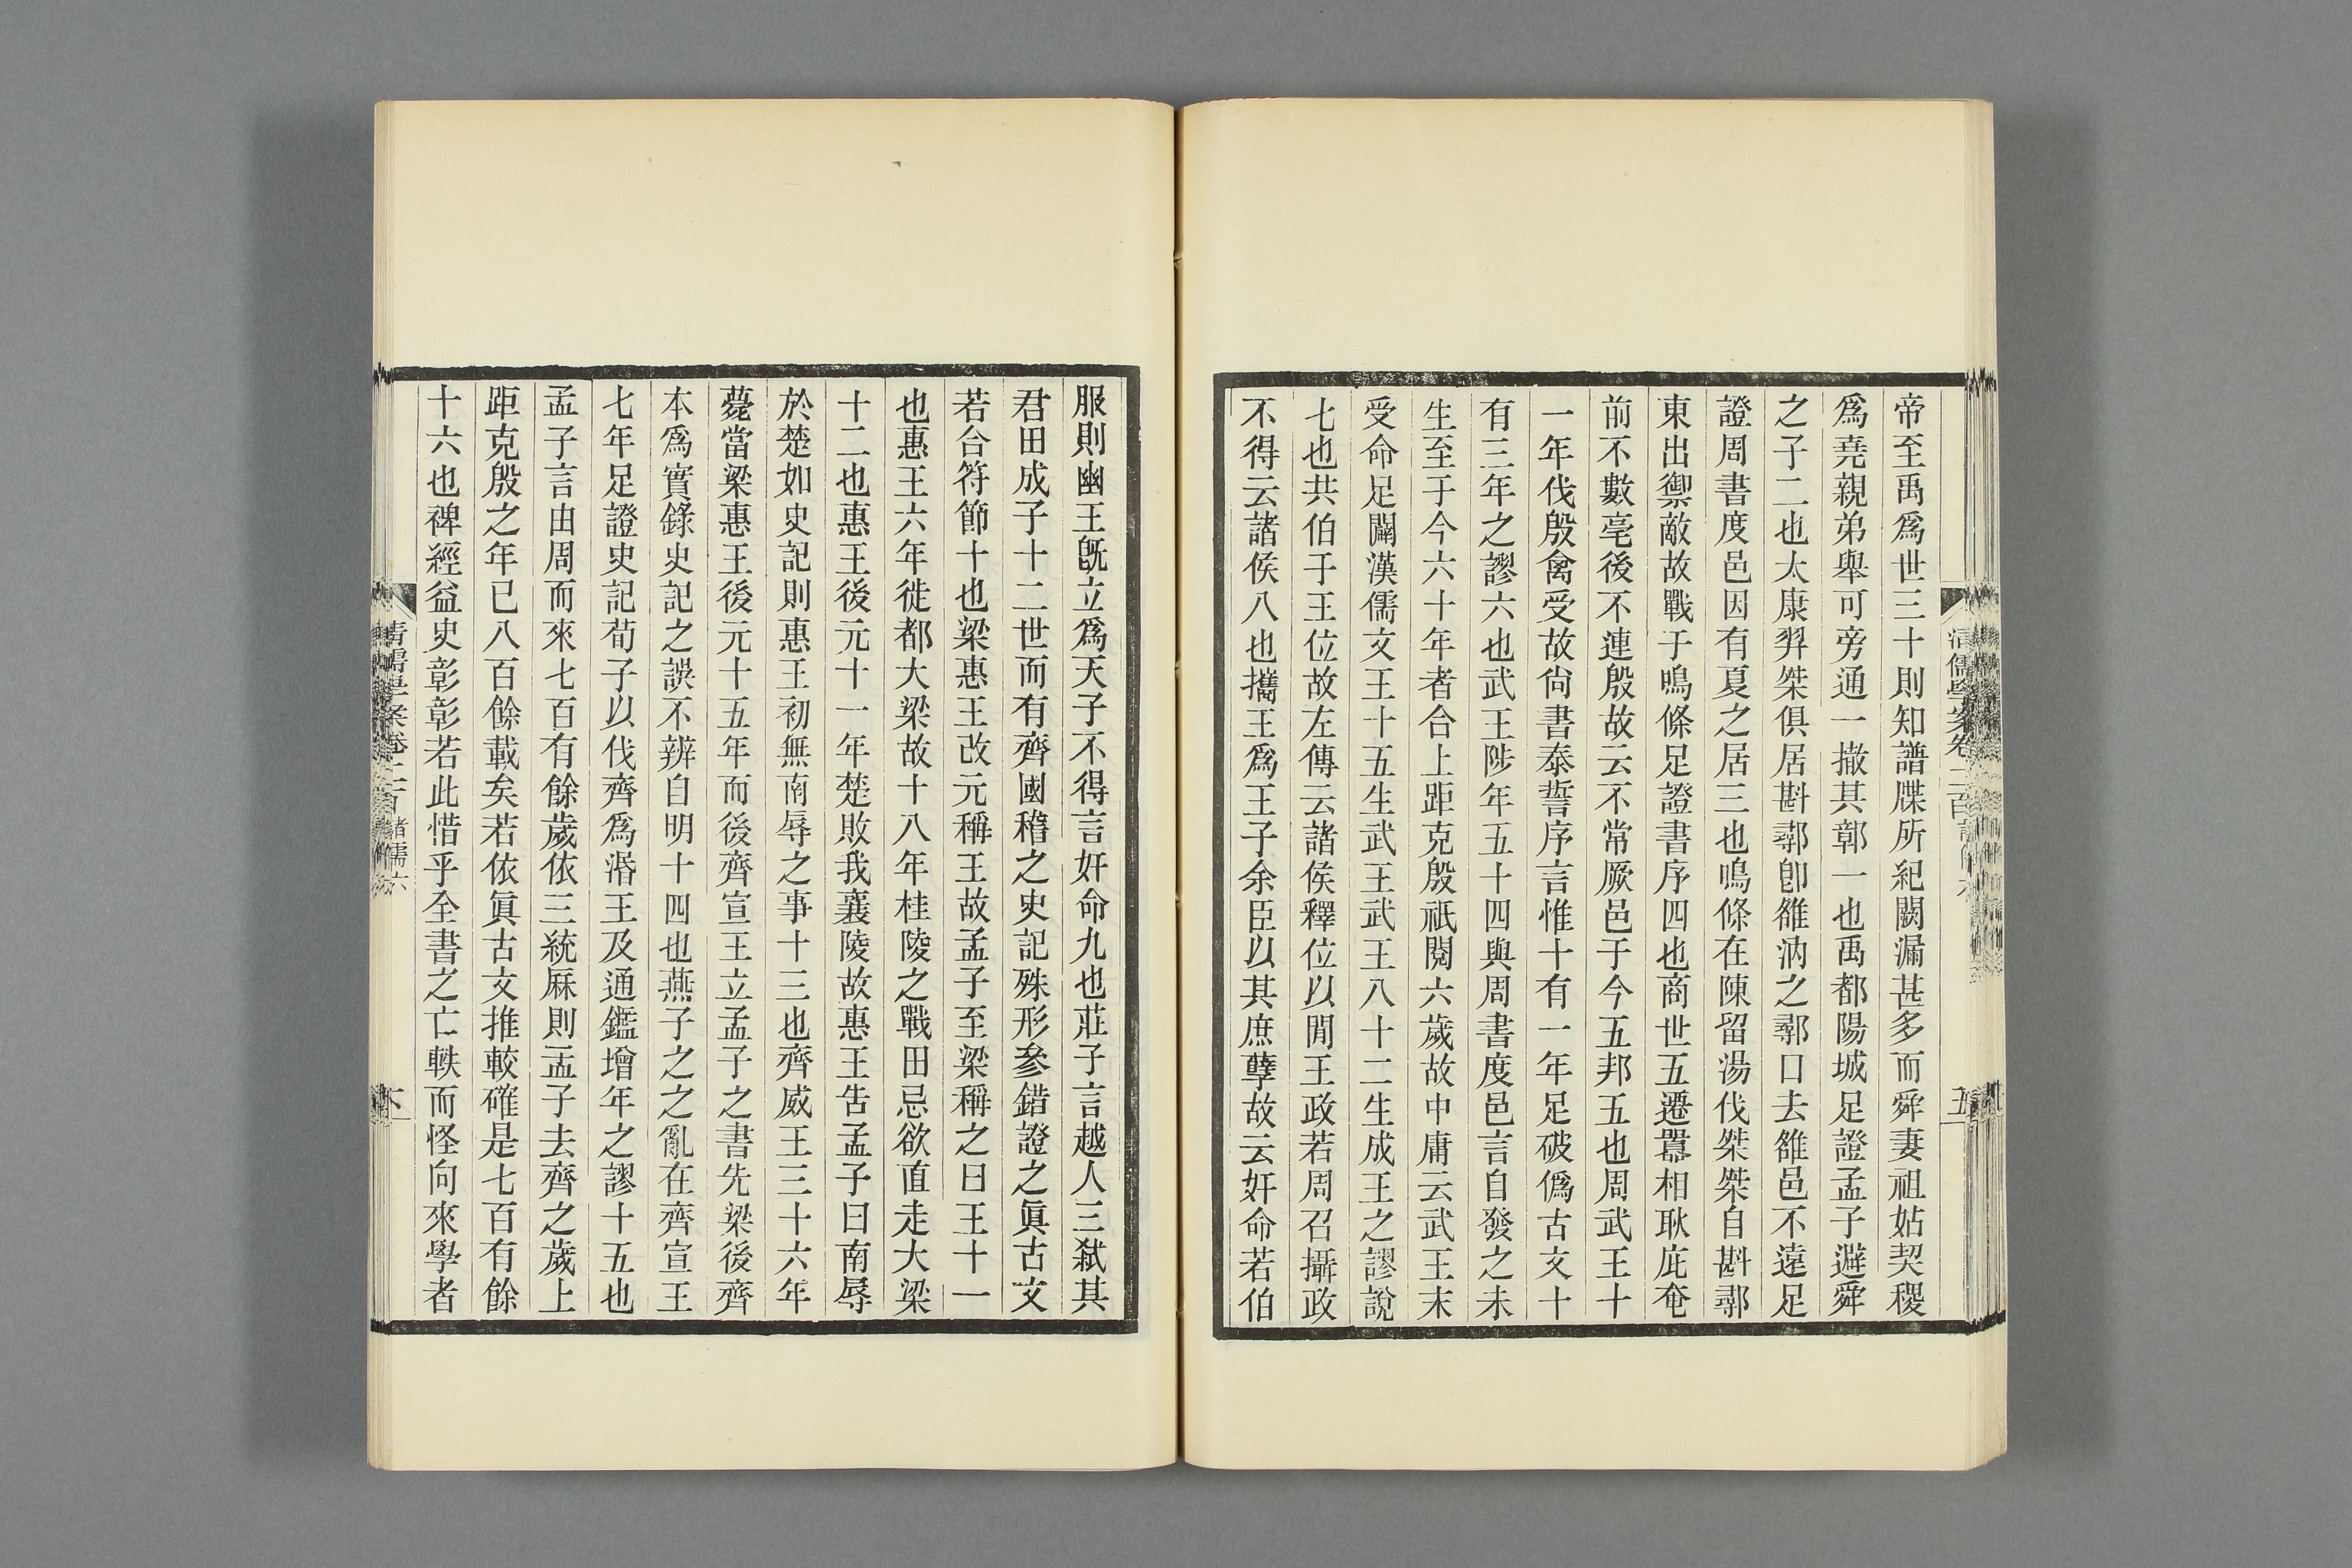 帝至禹爲世三十則知譜牒所紀闕漏甚多而舜妻祖姑契稷
爲堯親弟舉可旁通一撤其鄣一也禹都陽城足證孟子避舜
之子二也太康羿桀俱居斟鄩卽雒汭之鄩口去雒邑不遠足
證周書度邑因有夏之居三也鳴條在陳留湯伐桀桀自斟鄩
東出禦敵故戰于鳴條足證書序四也商世五遷囂相耿庇奄
前不數亳後不連殷故云不常厥邑于今五邦五也周武王十
一年伐殷禽受故尙書泰誓序言惟十有一年足破僞古文十
有三年之謬六也武王陟年五十四與周書度邑言自發之未
生至于今六十年者合上距克殷祇閱六歲故中庸云武王末
受命足闢漢儒文王十五生武王武王八十二生成王之謬說
七也共伯于王位故左傳云諸侯釋位以閒王政若周召攝政
不得云諸侯八也攜王爲王子余臣以其庶孽故云奸命若伯
服則幽王旣立爲天子不得言奸命九也莊子言越人三弑其
君田成子十二世而有齊國稽之史記殊形參錯證之眞古文
若合符節十也梁惠王改元稱王故孟子至梁稱之曰王十一
也惠王六年徙都大梁故十八年桂陵之戰田忌欲直走大梁
十二也惠王後元十一年楚敗我襄陵故惠王告孟子曰南辱
於楚如史記則惠王初無南辱之事十三也齊威王三十六年
薨當梁惠王後元十五年而後齊宣王立孟子之書先梁後齊
本爲實錄史記之誤不辨自明十四也燕子之之亂在齊宣王
七年足證史記荀子以伐齊爲湣王及通鑑增年之謬十五也
孟子言由周而來七百有餘歲依三統厤則孟子去齊之歲上
距克殷之年已八百餘載矣若依眞古文推較確是七百有餘
十六也裨經益史彰彰若此惜乎全書之亡軼而怪向來學者